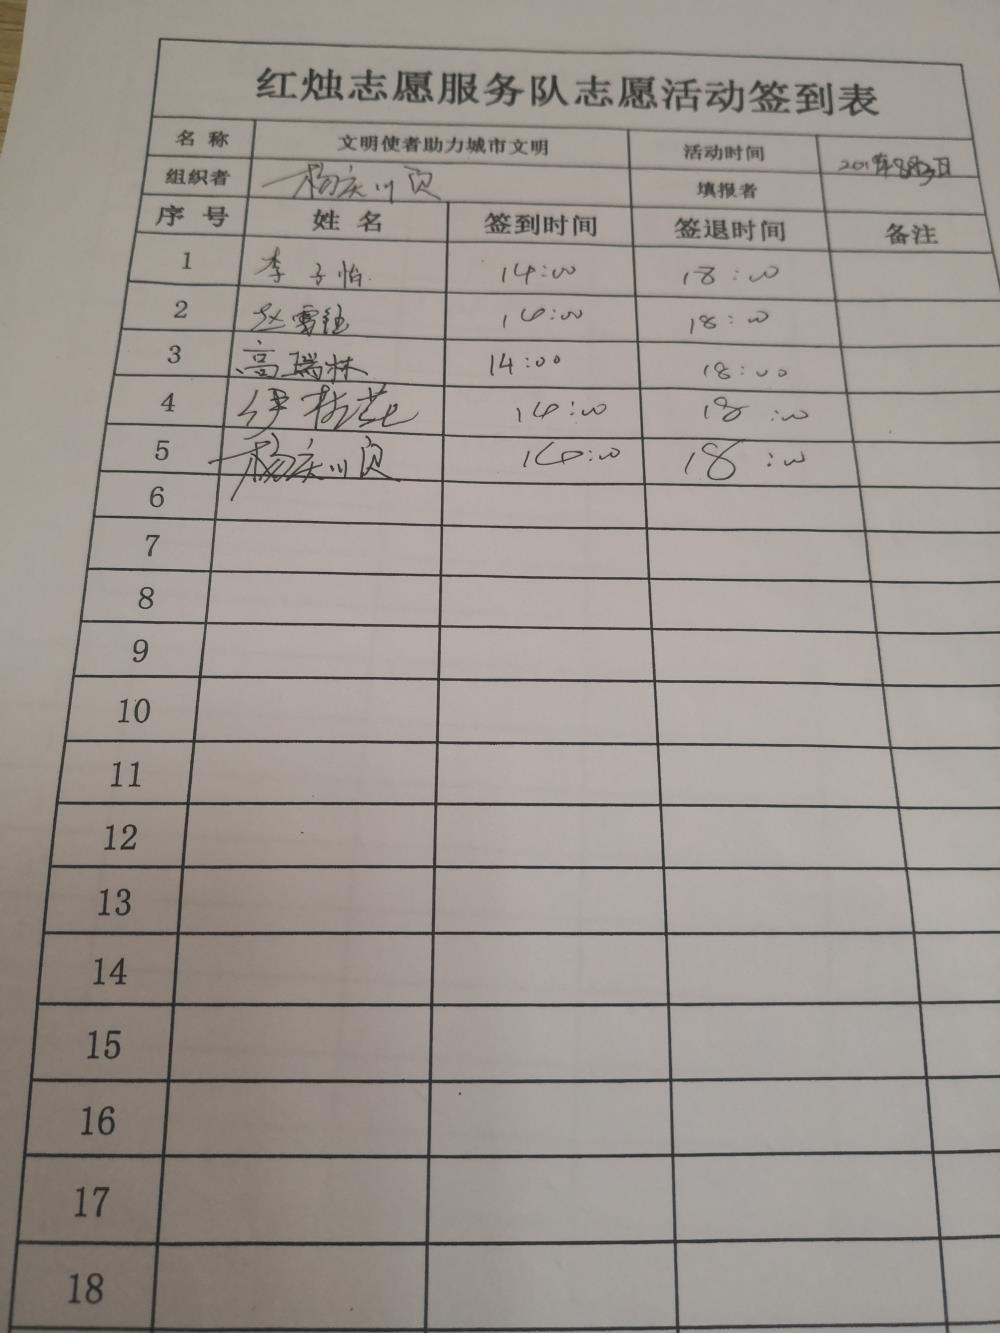 红烛志愿服务队志愿活动签到表
名 称 文明使者助力城市文明 活动时间
组织者 杨庆川页 填报者
序 号 姓 名 签到时间 签退时间 备注
1 李子怡 14:00 18:00
2 赵雪 14:00 18:00
3 高瑞林 14:00 18:00
4 伊 花 14:00 18:00
5 杨庆川页 14:00 18:00
6
7
8
9
10
11
12
13
14
15
16
17
18